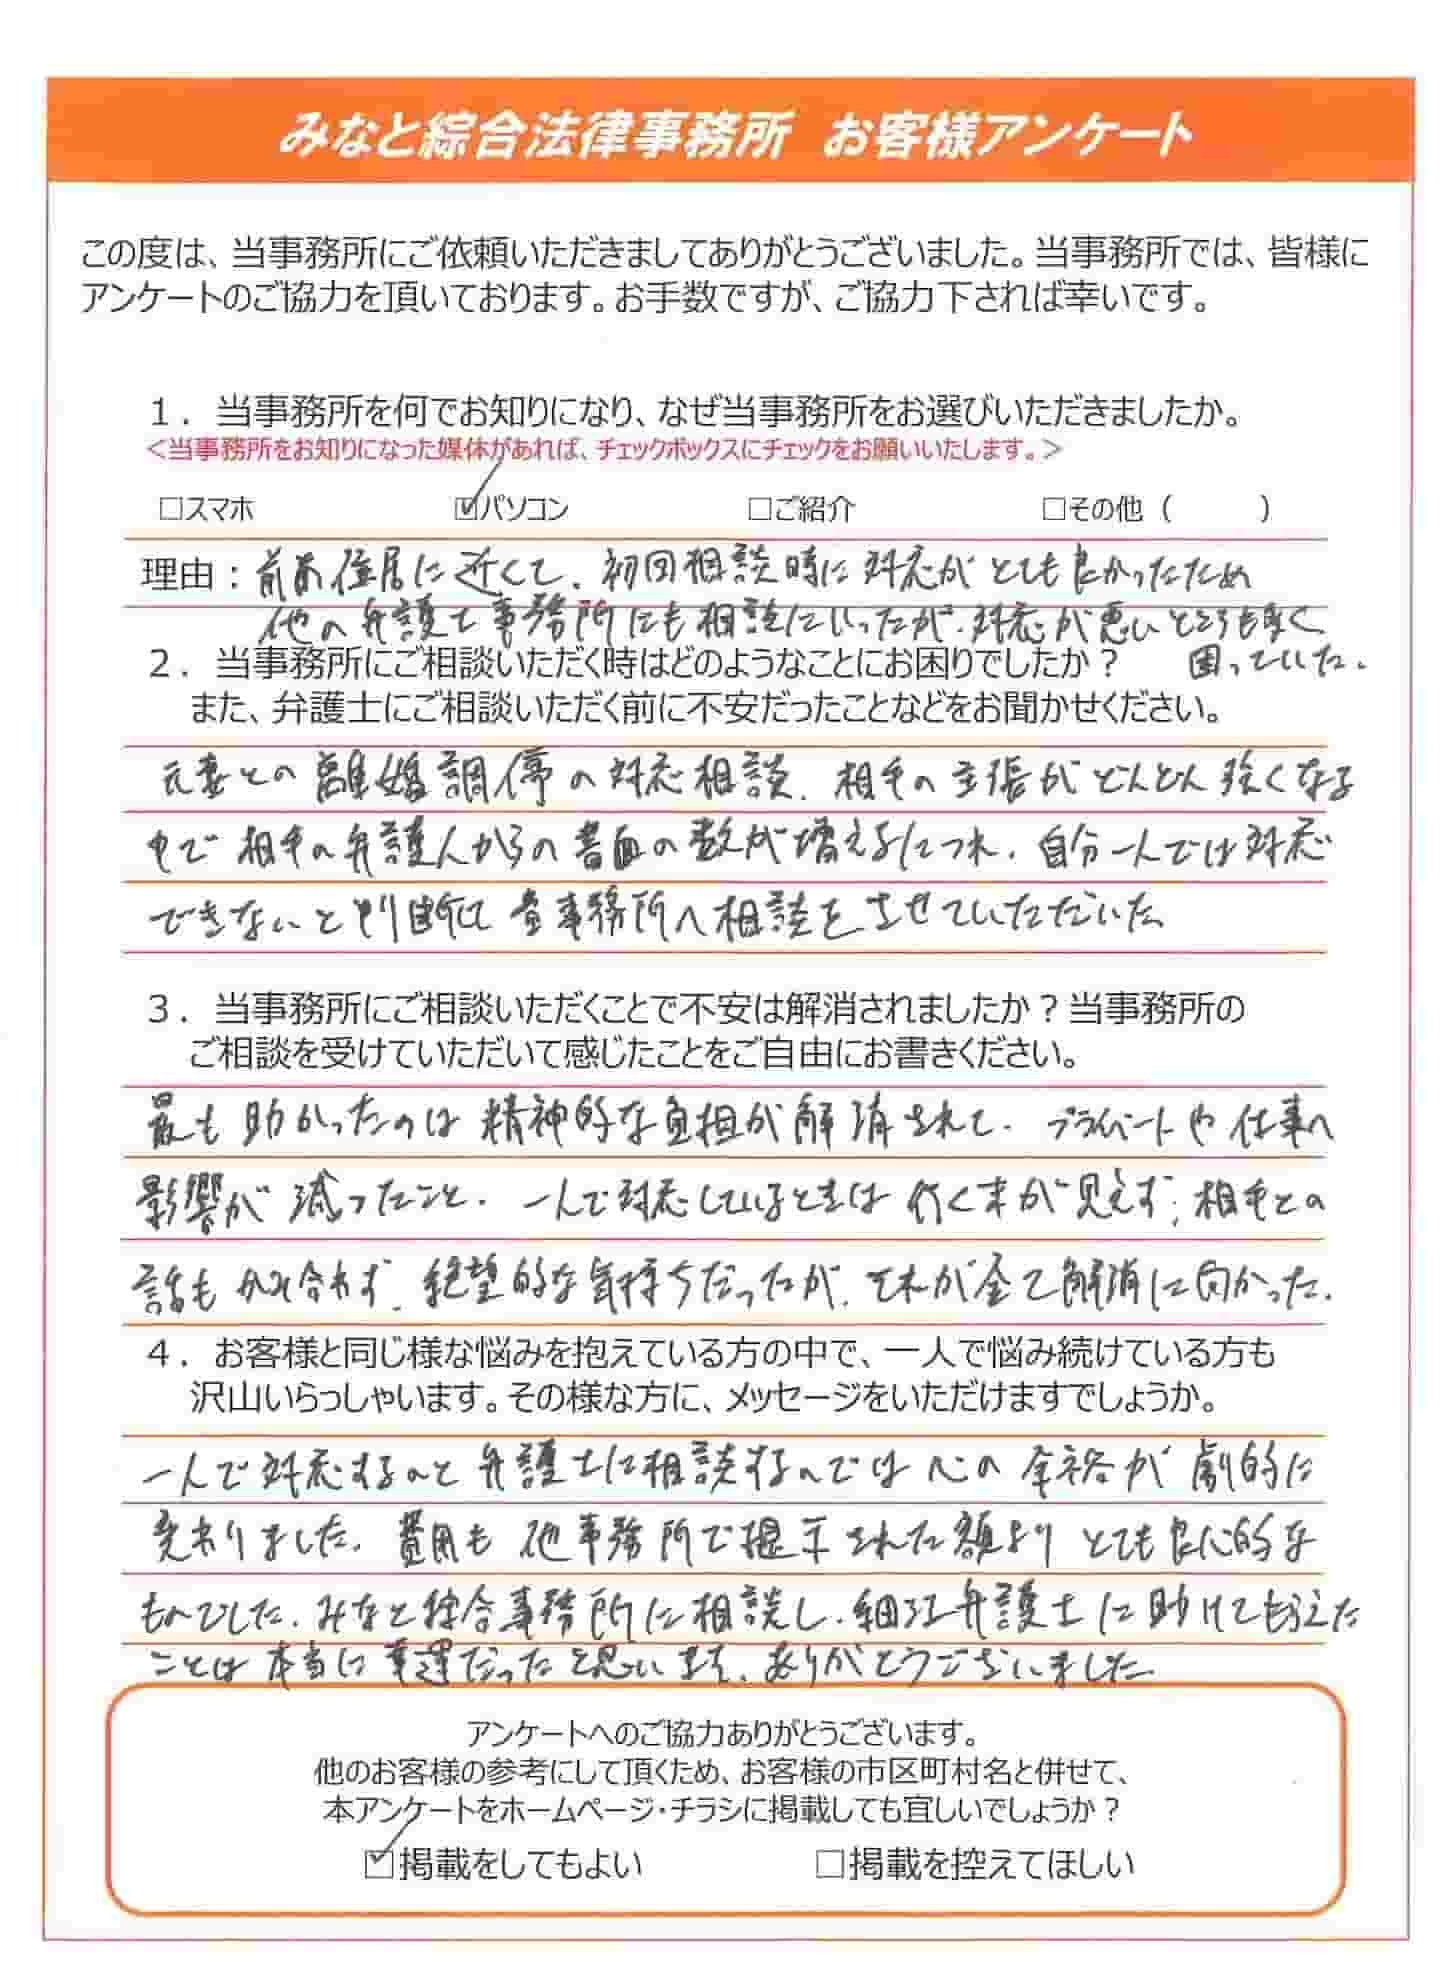 みなと綜合法律事務所 お客様アンケート
この度は、当事務所にご依頼いただきましてありがとうございました。当事務所では、皆様に
アンケートのご協力を頂いております。お手数ですが、ご協力下されば幸いです。
１．当事務所を何でお知りになり、なぜ当事務所をお選びいただきましたか。
＜当事務所をお知りになった媒体があれば、チェックボックスにチェックをお願いいたします。＞
□スマホ ☑パソコン □ご紹介 □その他（ ）
理由：前 住居に近くて、初回相談時に対応がとても良かったため
他の弁護士事務所にも相談にいったが、対応が悪いところも多く
困っていた。
２．当事務所にご相談いただく時はどのようなことにお困りでしたか？
また、弁護士にご相談いただく前に不安だったことなどをお聞かせください。
元妻との離婚調停の対応相談、相手の主張がどんどん強くなる
中で相手の弁護人からの書面の数が増えるにつれ、自分一人では対応
できないと判断して貴事務所へ相談をさせていただいた
３．当事務所にご相談いただくことで不安は解消されましたか？当事務所の
ご相談を受けていただいて感じたことをご自由にお書きください。
最も助かったのは精神的な負担が解消されて、プライベートや仕事へ
影響が減ったこと。一人で対応しているときは行く末が見えず、相手との
話もかみ合わず、絶望的な気持ちだったが、それが全て解消に向かった。
４．お客様と同じ様な悩みを抱えている方の中で、一人で悩み続けている方も
沢山いらっしゃいます。その様な方に、メッセージをいただけますでしょうか。
一人で対応するのと弁護士に相談するのでは心の余裕が劇的に
変わりました。費用も他事務所で提示された額よりとても良心的な
ものでした。みなと綜合事務所に相談し、細江弁護士に助けてもらえた
ことは本当に幸運だったと思います。ありがとうございました
アンケートへのご協力ありがとうございます。
他のお客様の参考にして頂くため、お客様の市区町村名と併せて、
本アンケートをホームページ・チラシに掲載しても宜しいでしょうか？
☑掲載をしてもよい □掲載を控えてほしい